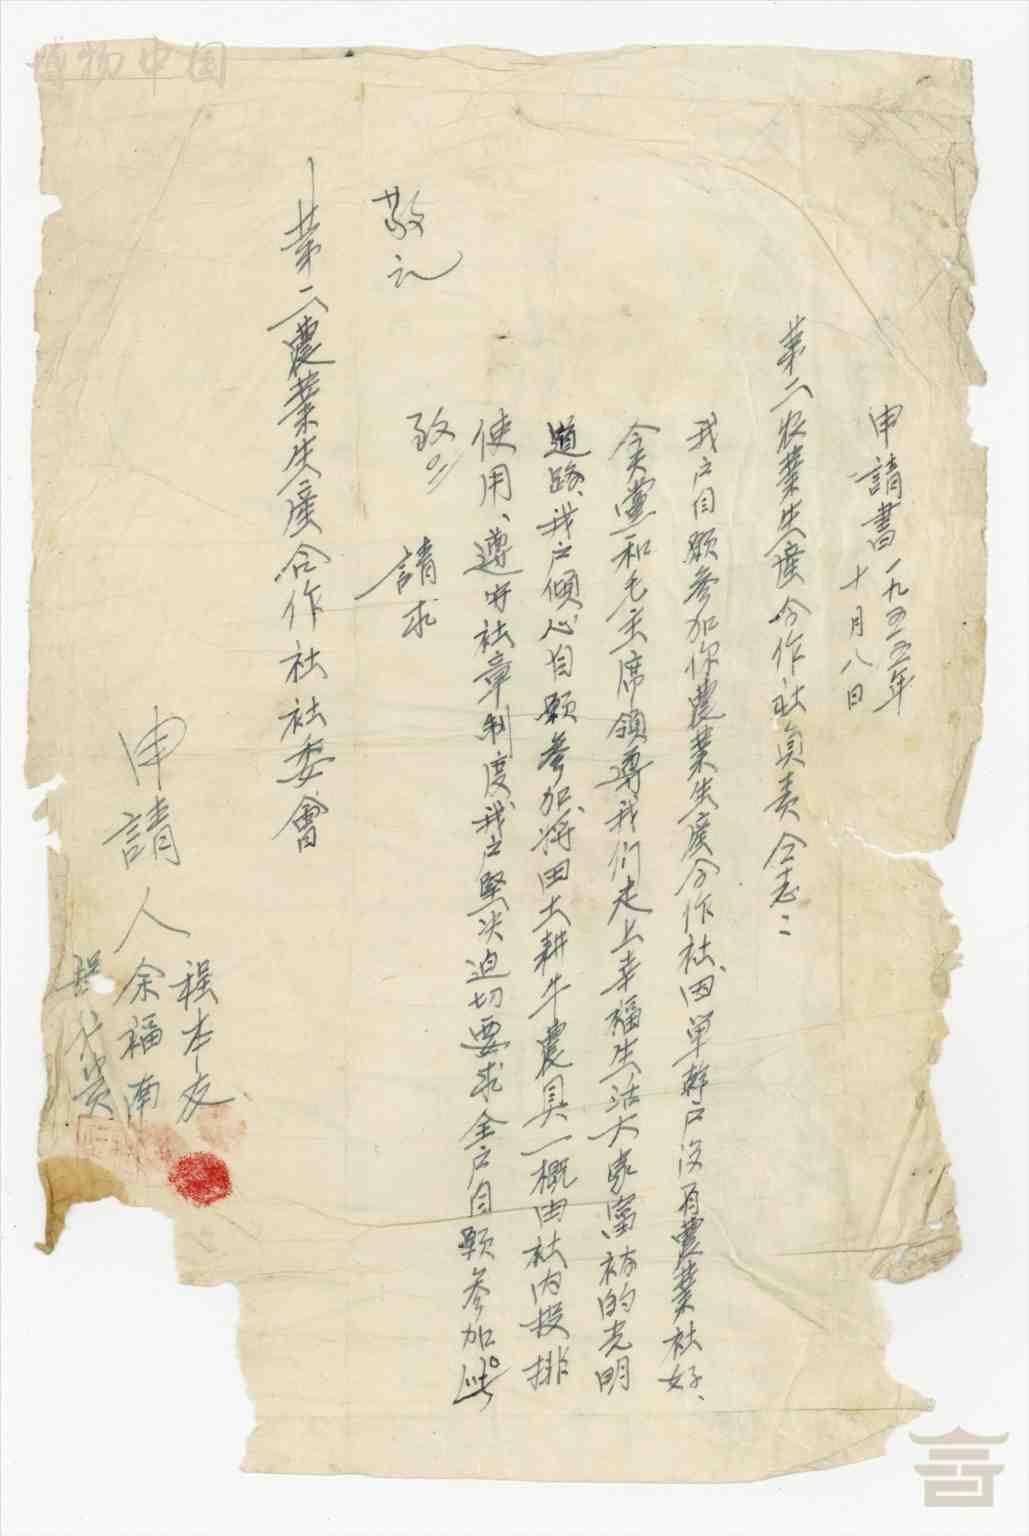 申請書一九五五年
十月八日
第二农業生產合作社負责仝志:
我户自願参加你農業生産合作社因單幹户没有農業社好、
今天黨和毛主席領導我們走上幸福生活大家富裕的光明
道路、我户傾心自願参加、将田土耕牛農具一概由社内投排
使用、遵守社章制度我户堅决迫切要求全户自願参加。此
致
請求
敬礼
第二農業生産合作社社委會
申請人
程本友
余福南
博物中国